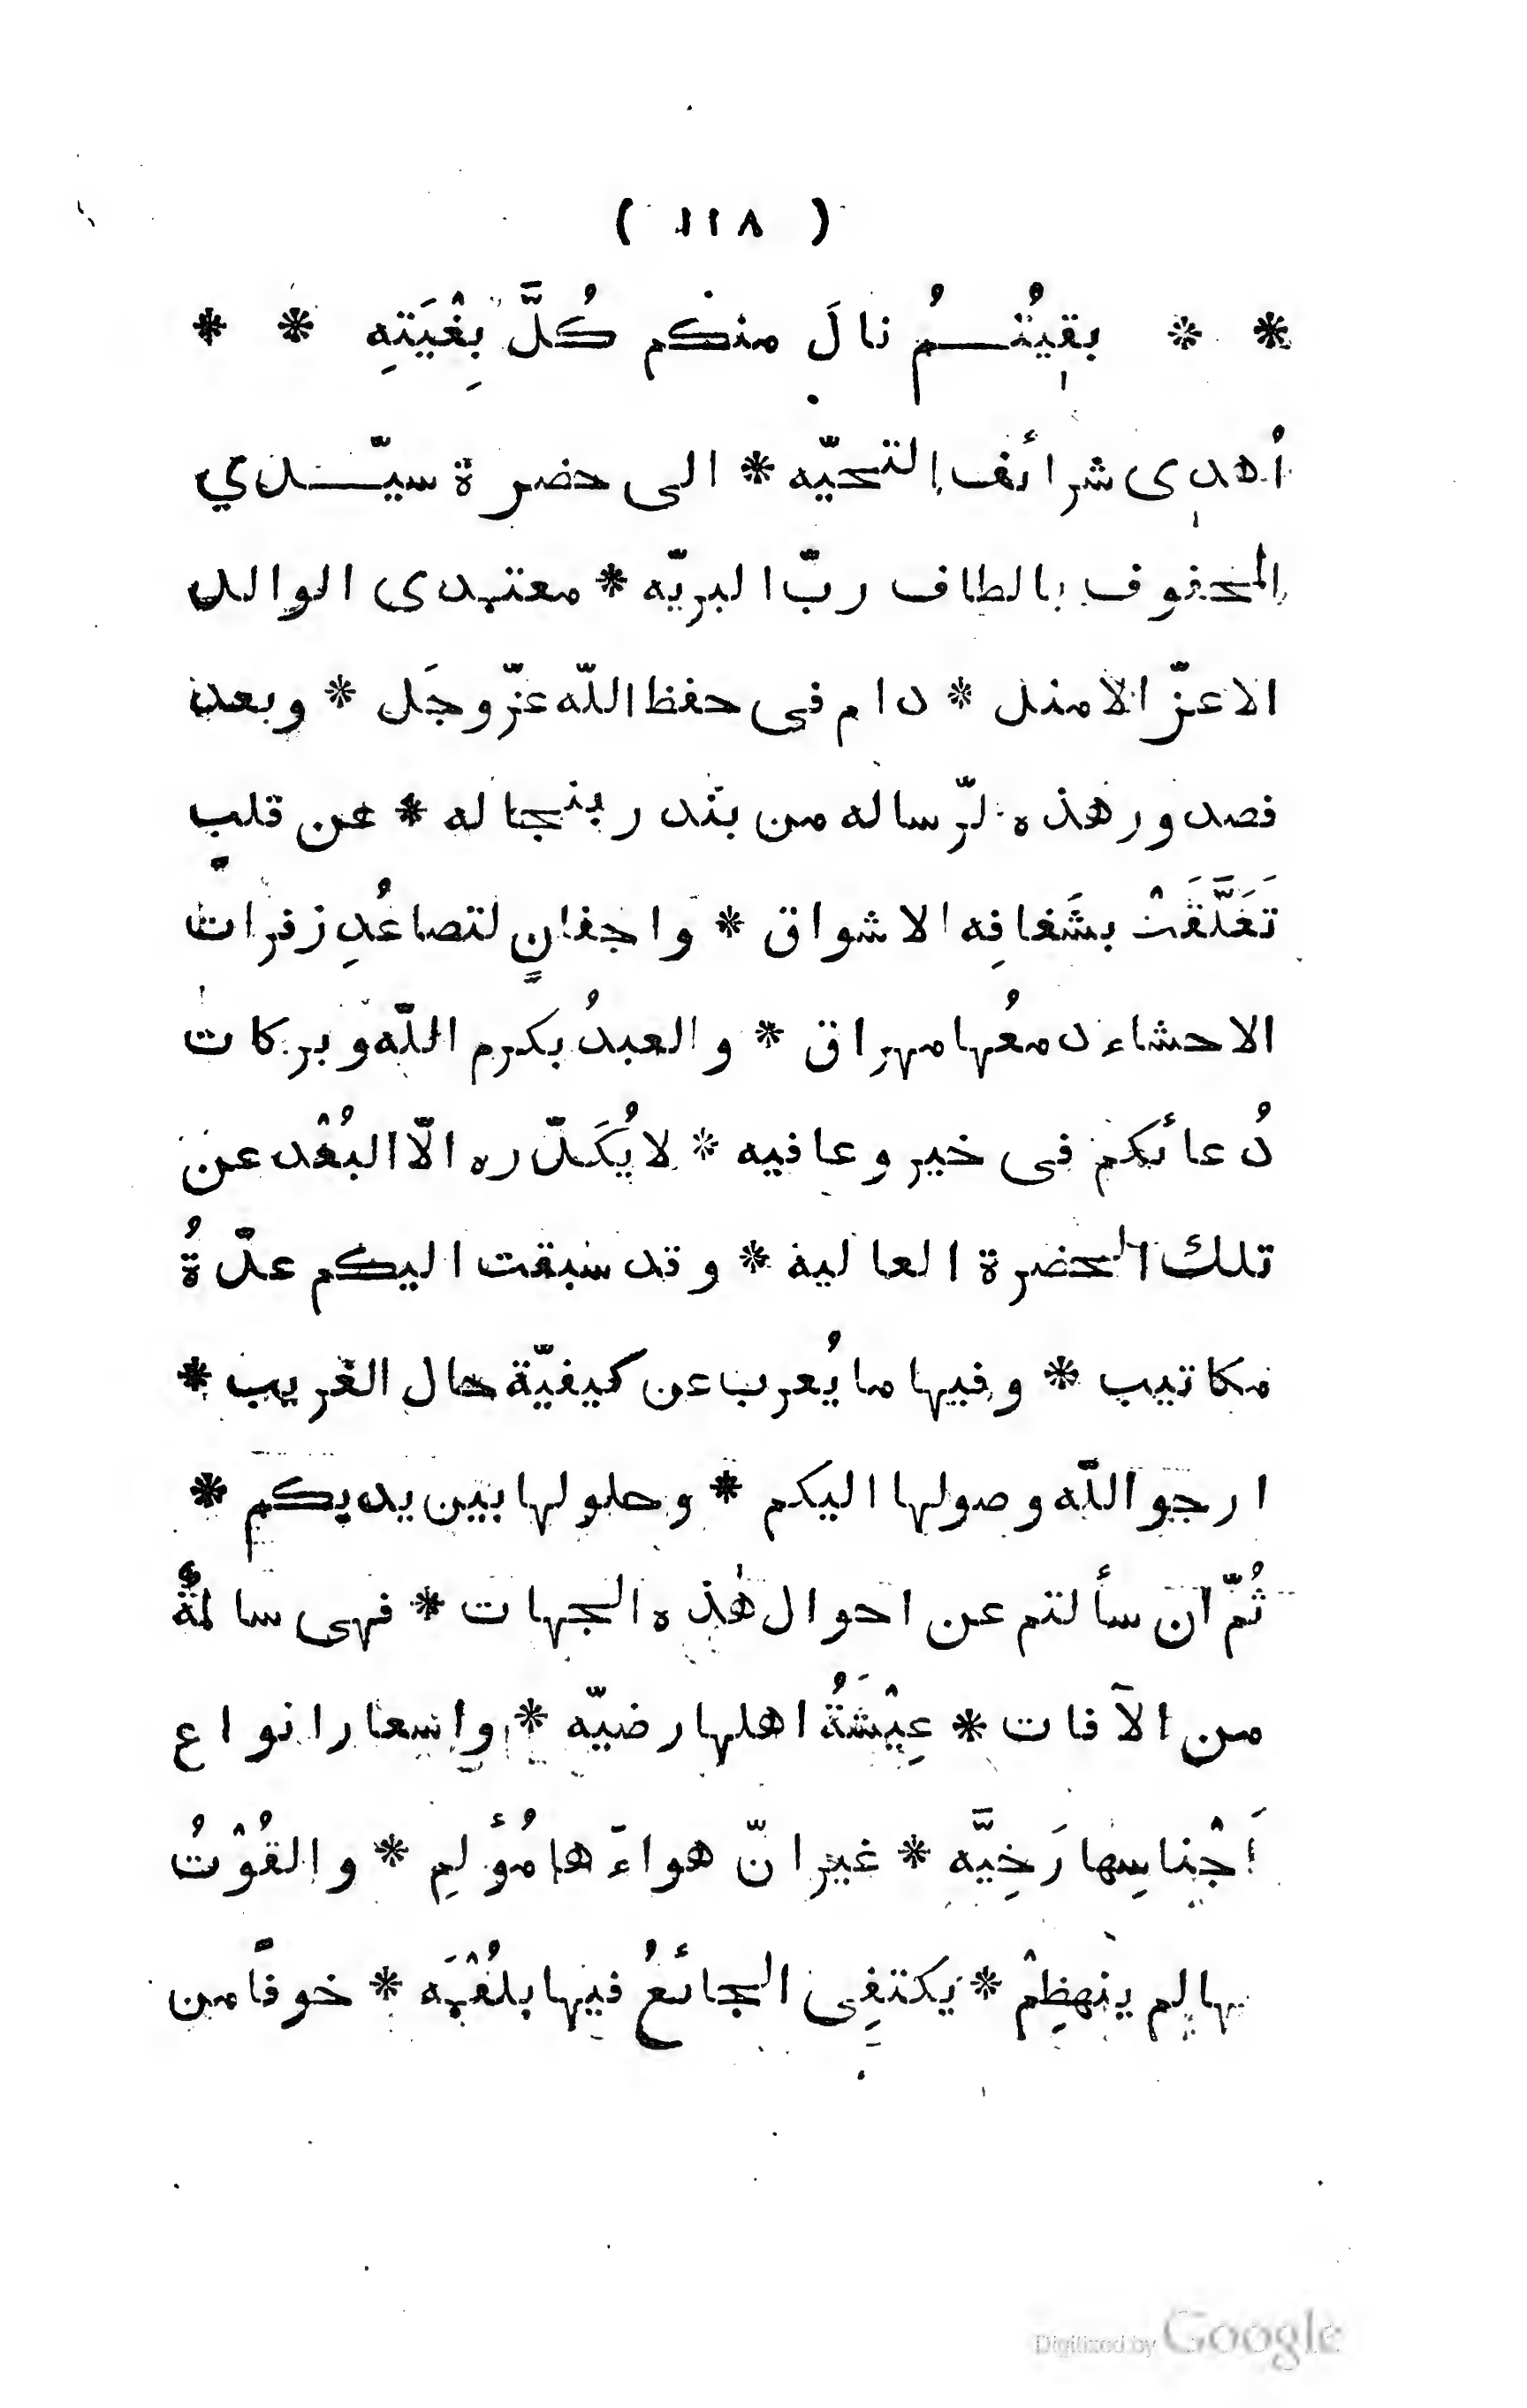 ( ١١٨ )
* * بقيتُمُ نالَ منكم كُلَّ بِغْيَتِهِ * *
أُهدى شرائف التحيّه * الى حضرة سيّدي
المحفوف بالطاف ربّ البريّه * معتمدى الوالد
الاعزّ الامثل * دام فى حفظ اللّه عزّ وجَل * وبعد
فصدور هذه الرّساله من بندر بنجاله * عن قلبٍ
تَعَلَّقَتْ بشَغافِه الاشواق * واجفانٍ لتصاعُدِ زفرات
الاحشاء دمعُها مهراق * والعبدُ بكرم اللّه وبركات
دُعائكم فى خير وعافيه * لا يُكَدّره الّا البُعْد عن
تلك الحضرة العالية * وقد سبقت اليكم عدّةُ
مكاتيب * وفيها ما يُعرب عن كيفيّة حال الغريب *
ارجو اللّه وصولها اليكم * وحلولها بين يديكم *
ثُمّ ان سألتم عن احوال هٰذه الجهات * فهى سالمةٌ
من الآفات * عِيْشَةُ اهلها رضيّه * واسعار انواع
اَجْناسِها رَخِيَّه * غير انّ هواءَها مُؤلِم * والقُوْتُ
بها لم ينهظِمْ * يكتفِى الجائعُ فيها بلُقْمَه * خوفًا من
Digitized by Google